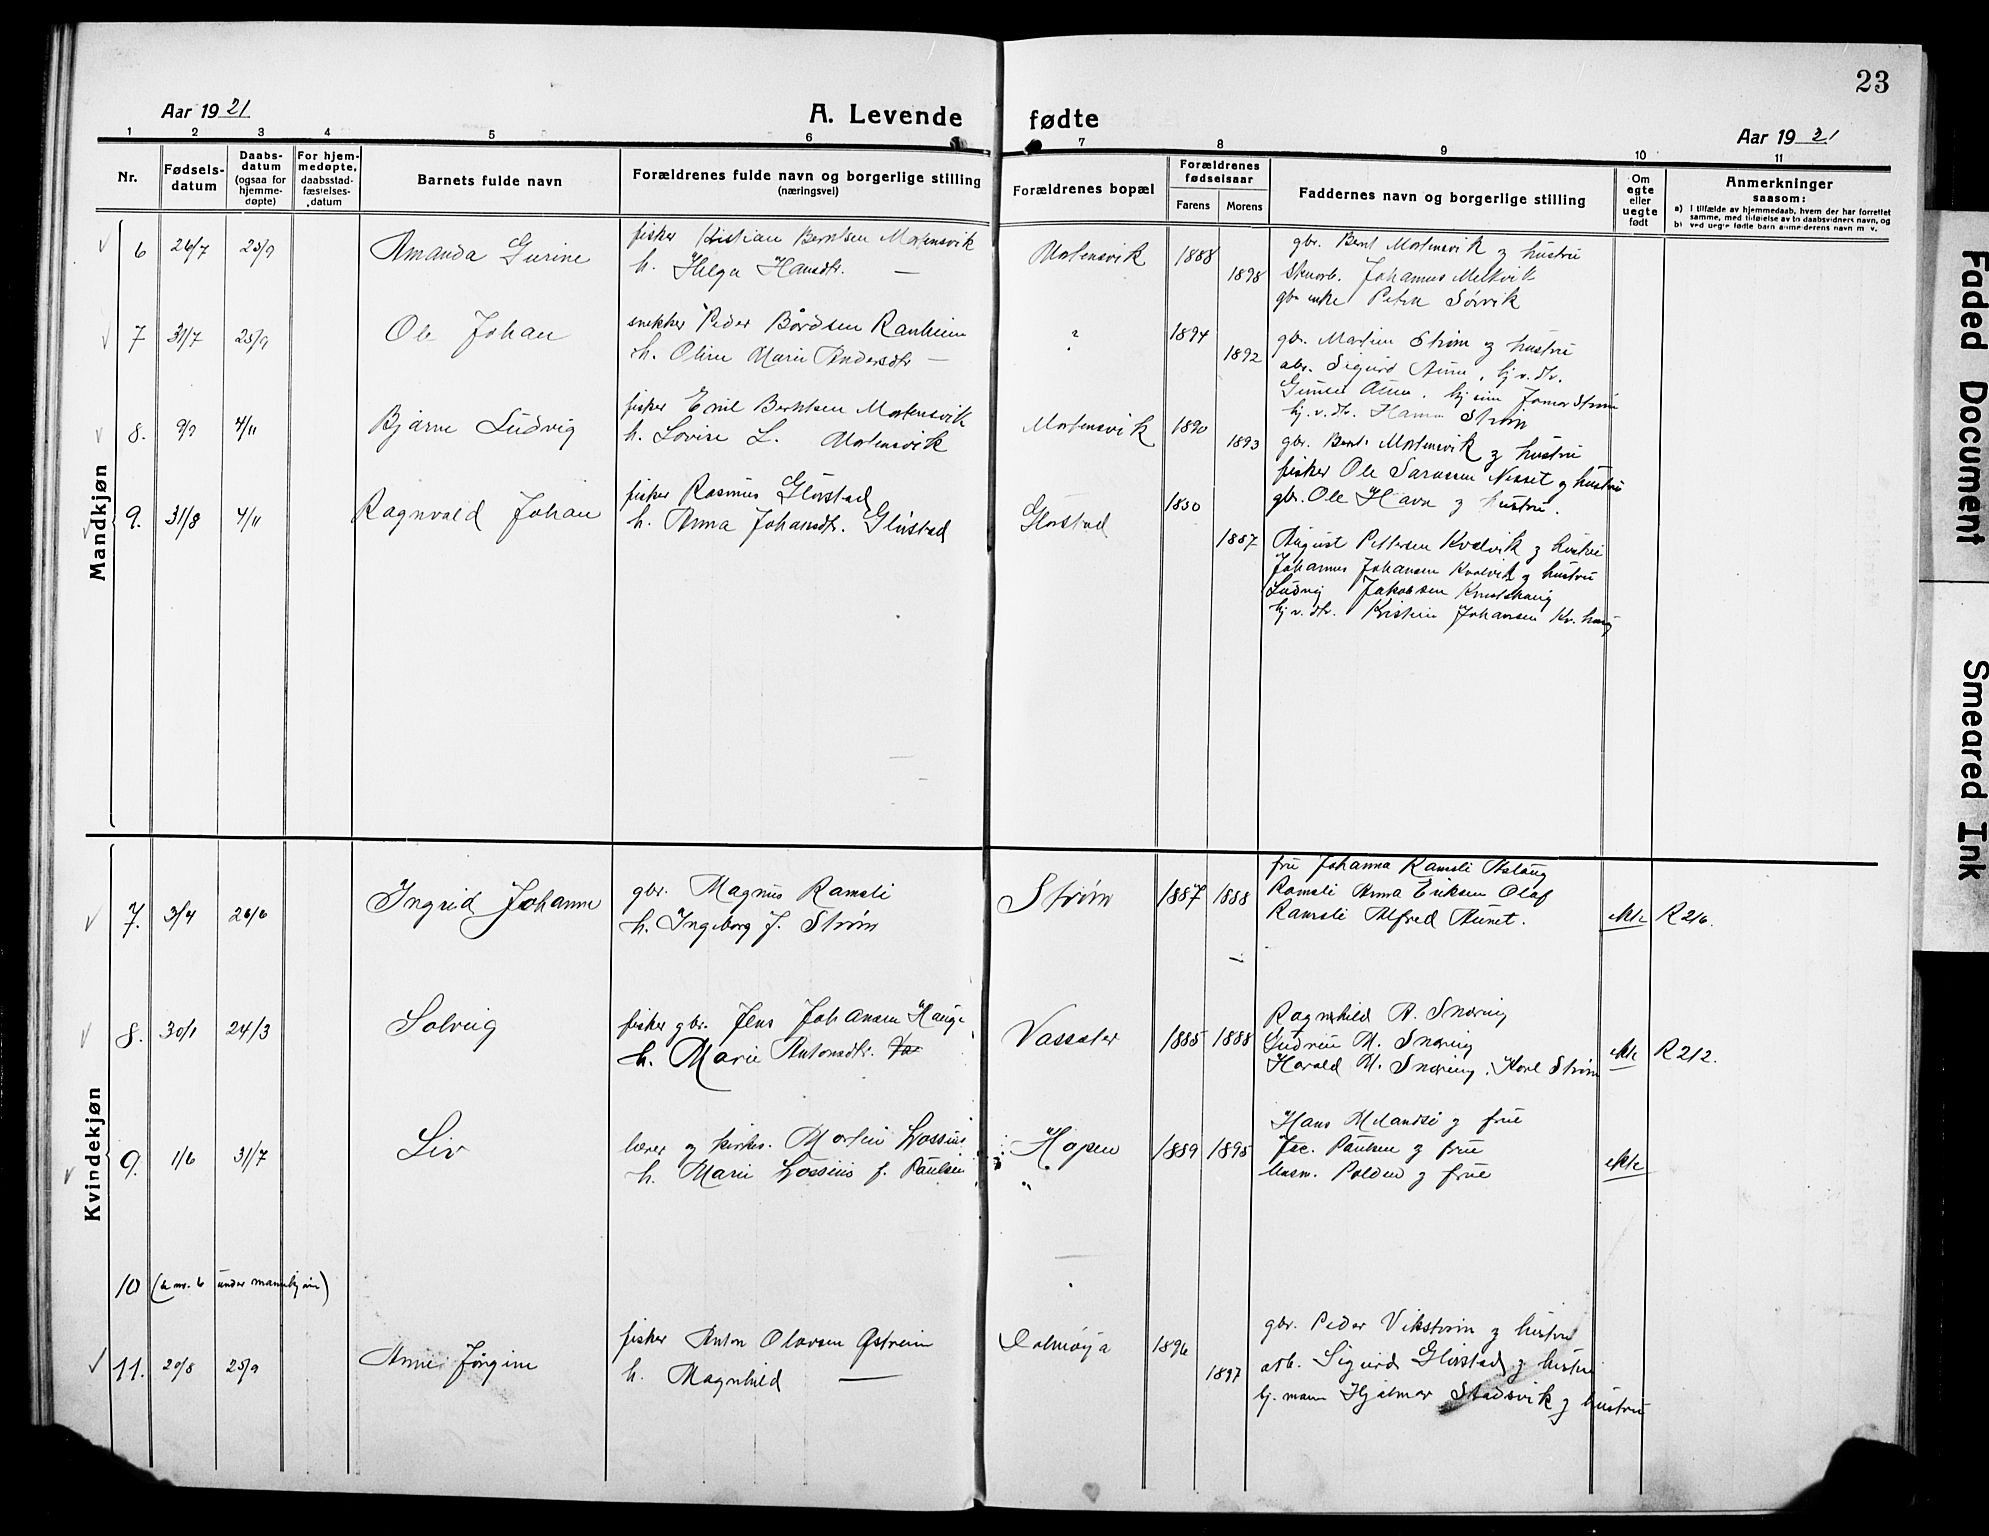 23
Aar 1921
A. Levende fødte
Aar 1921
1 2 3 4 5 6 7 8 9 10 11
Nr.
Fødsels-
datum
Daabs-
datum
(ogsaa for
hjemme-
døpte)
For hjem-
medøpte,
daabsstad-
fæstelses-
datum
Barnets fulde navn
Forældrenes fulde navn og borgerlige stilling
(næringsvei)
Forældrenes bopæl
Forældrenes
fødselsaar
Farens Morens
Faddernes navn og borgerlige stilling
Om
egte
eller
uegte
født
Anmerkninger
saasom:
a) I tilfælde av hjemmedaab, hvem der har forrettet
samme, med tilføielse av to daabsvidners navn, og
b) ved uegte fødte barn anmelderens navn m. v.
Mandkjøn
6 26/7 25/9 Amanda Gurine
fisker Kristian Berntsen Mortensvik
h. Helga Hansdtr. —
Mortensvik 1888 1898
gbr. Bernt Mortensvik og hustru
Johannes Melkvik
gbr enke Petra Sørvik
7 31/7 25/9 Ole Johan
snekker Peder Bårdsen Ranheim
h. Oline Marie Andersdtr —
? 1894 1892
gbr. Martin Strøm og hustru
arb. Sigurd Aune, hj.v.dtr.
Gunda Aune, hj sim Joman Strøm
hj.v.dtr. Hanna Strøm
8. 9/9 4/11 Bjarne Ludvig
fisker Emil Berntsen Mortensvik
h. Lovise L. Mortensvik
Mortensvik 1890 1893
gbr. Bernt Mortensvik og hustru
fisker Ole Sarassen Nesset og hustru
gbr. Ole Havn og hustru.
9. 31/8 4/11 Ragnvald Johan
fisker Rasmus Glørstad
h. Anna Johansdtr. Glørstad
Glørstad 1880 1887
August Pettersen Kvalvik og hustru
Johannes Johansen Kvalvik og hustru
Ludvig Jakobsen Knutshaug
hj.v.dtr. Kristine Johansen Kn.haug
Kvindekjøn
7. 3/4 26/6 Ingrid Johanne
gbr. Magnus Ramsli
h. Ingeborg J. Strøm
Strøm 1887 1888
fru Johanna Ramsli Aslaug
Ramsli Anna Eriksen Olaf
Ramsli Alfred Aunet.
ekte R 216.
8. 30/1 24/3 Solveig
fisker gbr. Jens Johansen Hauge
h. Marie Antonsdtr. Va
Vassater 1885 1888
Ragnhild A. Snøring
Gudrun M. Snøring
Harald M. Snøring, Karl Strøm
ekte R 212.
9. 1/6 31/7 Liv
lærer og kirkes. Martin Lossius
h. Marie Lossius f. Paulsen
Hopen 1889 1895
Hans Melandsø og frue
Jac. Paulsen og frue
Rasm. Polden og frue
ekte
10 (se nr. 6 under mannkjøn)
11. 20/8 25/9 Anne Jørgine
fisker Anton Olavsen Østrem
h. Magnhild —
Dolmøya 1896 1897
gbr. Peder Vikstrøm og hustru
arb. Sigurd Glørstad og hustru
hj. mann Hjalmar Stadsvik og hustru
Faded Document
Smeared Ink